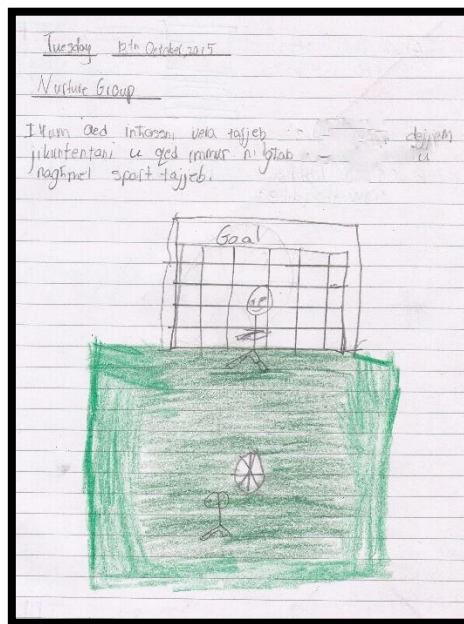 Tuesday 12th October, 2015
Nurture Group
Illum qed inħossni vera tajjeb dejjem
jikuntentani u qed immur n u
nagħmel sport tajjeb.
Goal